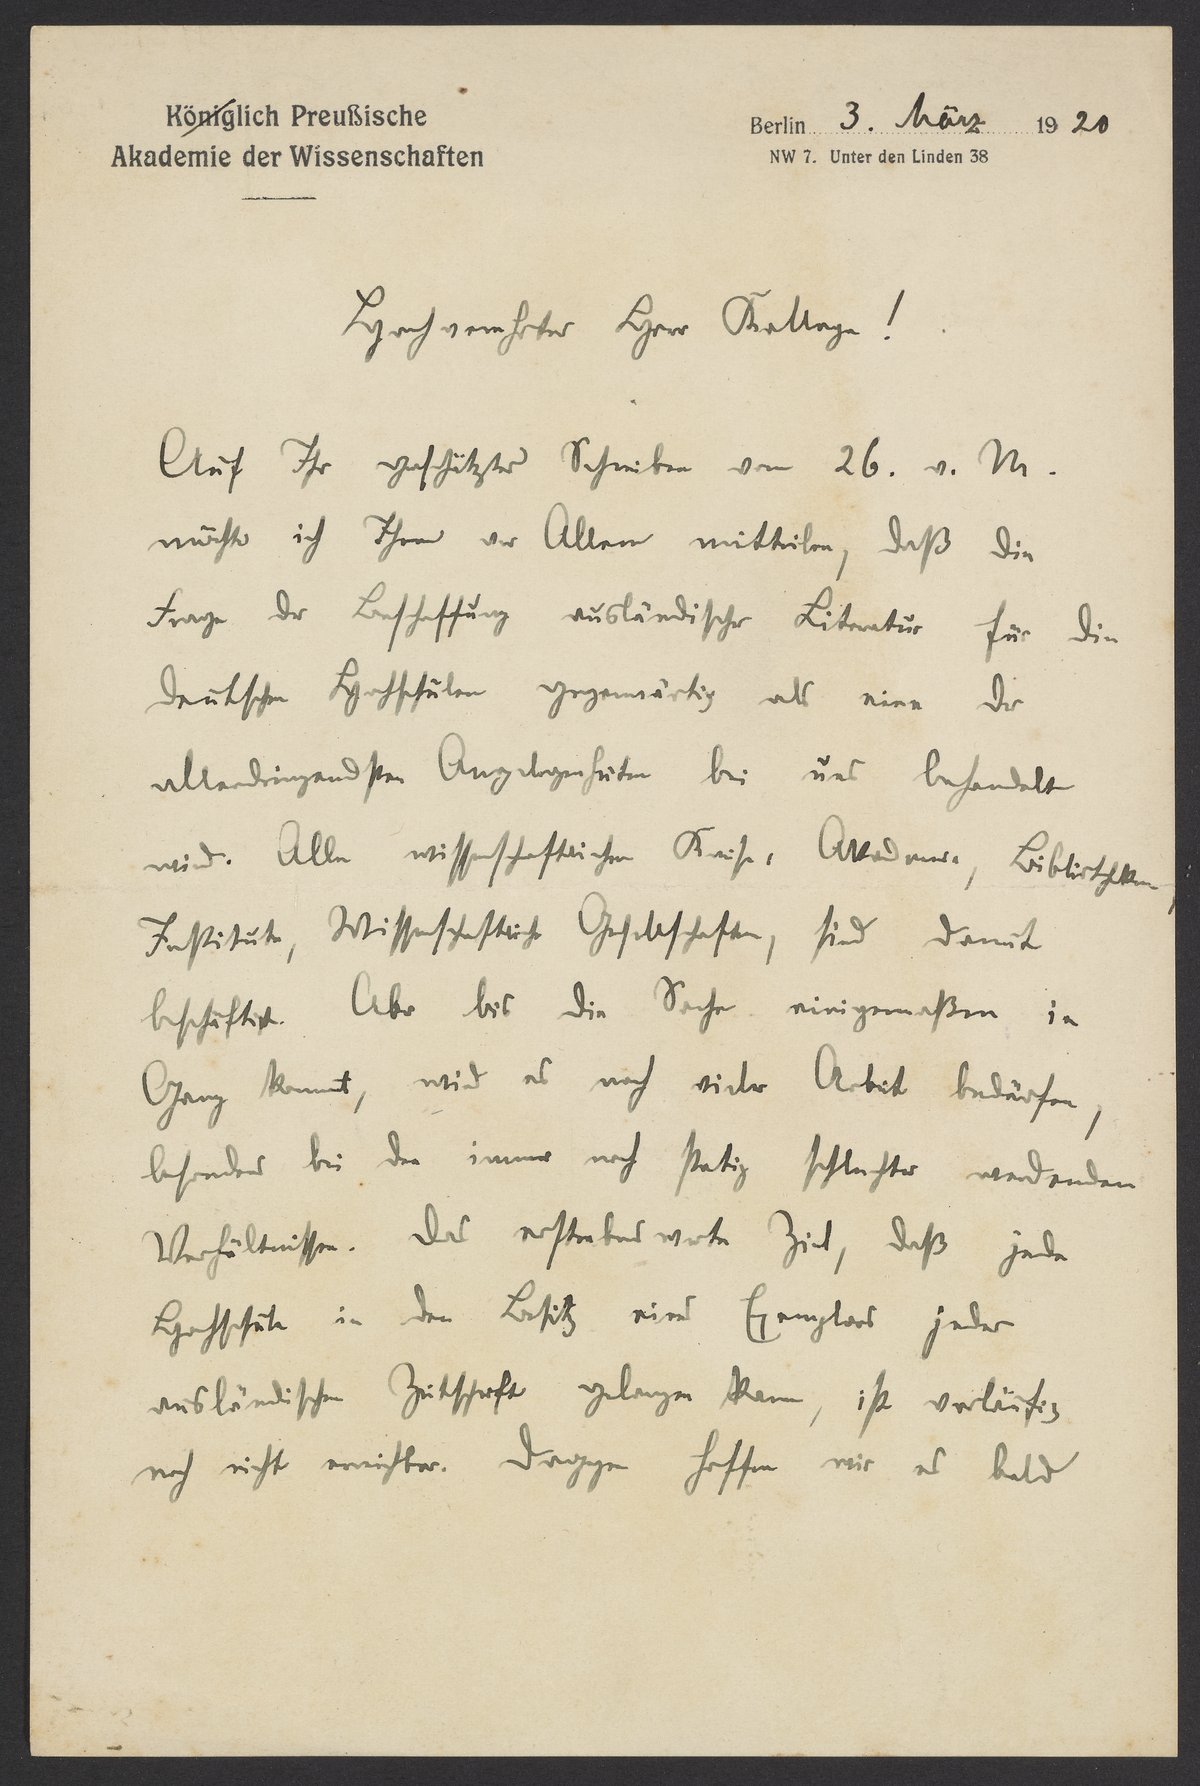 Königlich Preußische
Akademie der Wissenschaften
Berlin 3. März 1920
NW 7. Unter den Linden 38
Hochverehrter Herr Kollege!
Auf Ihr geschätztes Schreiben vom 26. v. M.
möchte ich Ihnen vor Allem mitteilen, daß die
Frage der Beschaffung ausländischer Literatur für die
deutschen Hochschulen gegenwärtig als eine der
allerdringendsten Angelegenheiten bei uns behandelt
wird. Alle wissenschaftlichen Kreise, Akademie, Bibliotheken,
Institute, Wissenschaftliche Gesellschaften, sind damit
beschäftigt. Aber bis die Sache einigermaßen in
Gang kommt, wird es noch vieler Arbeit bedürfen,
besonders bei den immer noch stetig schlechter werdenden
Verhältnissen. Das erstrebenswerte Ziel, daß jede
Hochschule in den Besitz eines Exemplars jeder
ausländischen Zeitschrift gelangen kann, ist vorläufig
noch nicht erreichbar. Dagegen hoffen wir es bald